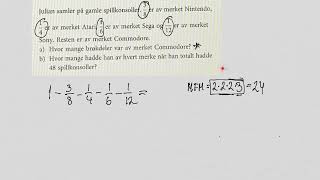 Julian samler på gamle spillkonsoller. 3/8 er av merket Nintendo,
1/4 er av merket Atari, 1/6 er av merket Sega og 1/12 er av merket
Sony. Resten er av merket Commodore.
a) Hvor mange brøkdeler var av merket Commodore?
b) Hvor mange hadde han av hvert merke når han totalt hadde
48 spillkonsoller?
1 - 3/8 - 1/4 - 1/6 - 1/12 =
MFM = 2·2·2·3 = 24